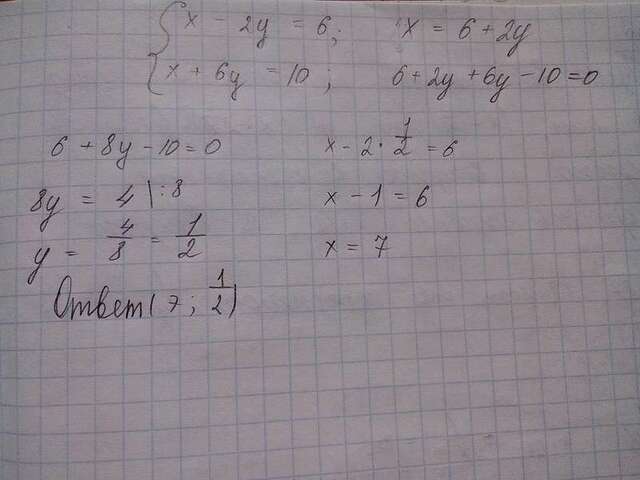 { x - 2y = 6; x = 6 + 2y
{ x + 6y = 10; 6 + 2y + 6y - 10 = 0
6 + 8y - 10 = 0
8y = 4 | : 8
y = 4/8 = 1/2
x - 2 · 1/2 = 6
x - 1 = 6
x = 7
Ответ (7; 1/2)